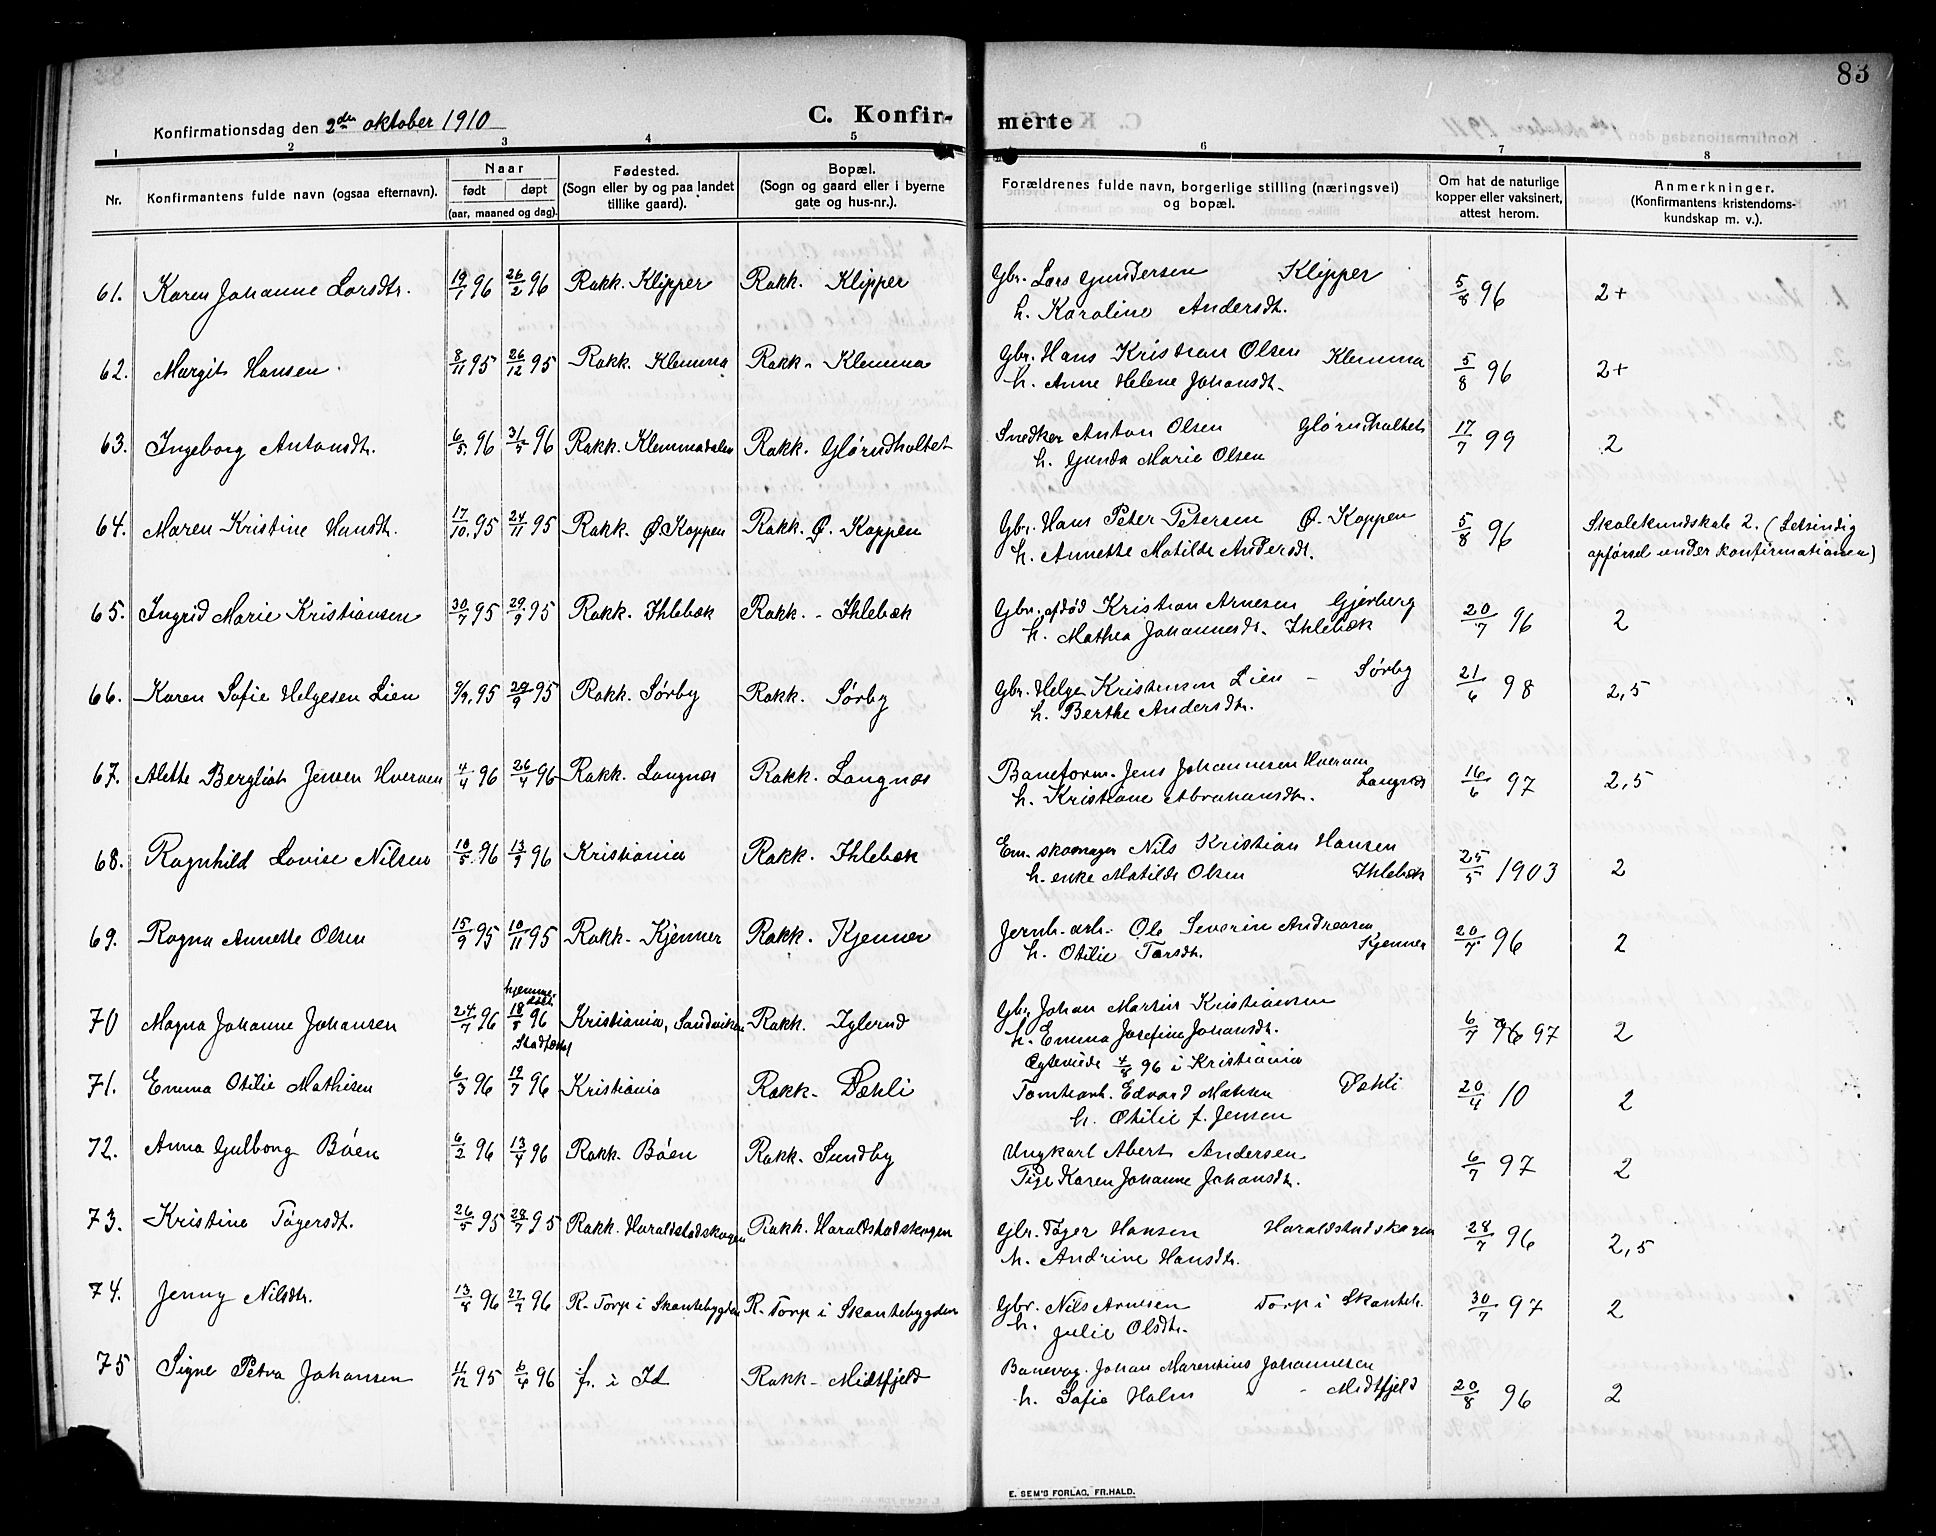 83
Konfirmationsdag den 2den oktober 1910
C. Konfir- merte
1 2 3 4 5 6 7 8
Nr. Konfirmantens fulde navn (ogsaa efternavn). Naar født døpt (aar, maaned og dag). Fødested. (Sogn eller by og paa landet tillike gaard). Bopæl. (Sogn og gaard eller i byerne gate og hus-nr.). Forældrenes fulde navn, borgerlige stilling (næringsvei) og bopæl. Om hat de naturlige kopper eller vaksinert, attest herom. Anmerkninger. (Konfirmantens kristendoms- kundskap m. v.).
61. Karen Johanne Larsdtr. 19/1 96 26/2 96 Rakk. Klipper Rakk. Klipper Gbr. Lars Gundersen Klipper 5/8 96 2+
h. Karoline Andersdt.
62. Margit Hansen 8/11 95 26/12 95 Rakk. Klemma Rakk. Klemma Gbr. Hans Kristian Olsen Klemma 5/8 96 2+
h. Anne Helene Johansdt.
63. Ingeborg Antonsdt. 6/5 96 31/5 96 Rakk. Klemmadalen Rakk. Glørudholtet Snedker Anton Olsen Glørudholtet 17/7 99 2
h. Gunda Marie Olsen
64. Maren Kristine Hansdt. 17/10 95 24/11 95 Rakk. Ø. Koppen Rakk. Ø. Koppen Gbr. Hans Peter Petersen Ø. Koppen 5/8 96 Skolekundskab 2. (Letsindig
h. Annette Matilde Andersdt. opførsel under konfirmationen)
65. Ingrid Marie Kristiansen 30/7 95 29/9 95 Rakk. Ihlebæk Rakk. - Ihlebæk Gbr. afdød Kristian Arnesen Gjerberg 20/7 96 2
h. Mathea Johannesdt. Ihlebæk
66. Karen Sofie Helgesen Lien 9/9 95 29/9 95 Rakk. Sørby Rakk. Sørby Gbr. Helge Kristensen Lien - Sørby 21/6 98 2,5
h. Berthe Andersdt.
67. Alette Bergliot Jensen Hverven 4/4 96 26/4 96 Rakk. Langnæs Rakk. Langnæs Baneform. Jens Johannesen Hverven 16/6 97 2,5
h. Kristiane Abrahamsdtr. Langnæs
68. Ragnhild Lovise Nilsen 10/5 96 13/9 96 Kristiania Rakk. Ihlebæk Em. skomager Nils Kristian Hansen 25/5 1903 2
h. enke Matilde Olsen Ihlebæk
69. Ragna Annette Olsen 15/9 95 10/11 95 Rakk. Kjenner Rakk. Kjenner Jernb. arb. Ole Severin Andreasen 20/7 96 2
h. Otilie Torsdt. Kjenner
hjemme-
70 Magna Johanne Johansen 24/7 96 18/8 96 Kristiania, Sandviken Rakk. Iglerud Gbr. Johan Martin Kristiansen 6/7 97 2
h. Emma Josefine Johansdt.
4/8 96 i Kristiania
71. Emma Otilie Mathisen 6/3 96 19/7 96 Kristiania Rakk. Dæhli Tomtearb. Edvard Matisen Dæhli 20/4 10 2
h. Otilie f. Jensen
72. Anna Gulborg Bøen 6/2 96 13/4 96 Rakk. Bøen Rakk. Sundby Ungkarl Abert Andersen 6/7 97 2
Pige Karen Johanne Johansdt.
73. Kristine Tøgersdt. 26/5 95 28/7 95 Rakk. Haraldstadskogen Rakk. Haraldstadskogen Gbr. Tøger Hansen Haraldstadskogen 28/7 96 2,5
h. Andrine Hansdt.
74. Jenny Nilsdtr. 13/8 96 27/9 96 R. Torp i Skantebygden R. Torp i Skantebygden Gbr. Nils Arnesen Torp i Skanteb. 30/7 97 2
h. Julie Olsdtr.
75 Signe Petra Johansen 11/12 95 6/4 96 f. i Id Rakk. Midtfjeld Banevog. Johan Marentius Johannesen
h. Sofie Holm - Midtfjeld 20/8 96 2
E. SEM'S FORLAG, FR.HALD.